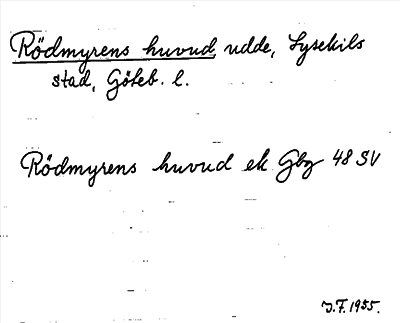 Rödmyrens huvud, udde, Lysekils
stad, Göteb. l.
Rödmyrens huvud ek Gbg 48 SV
J.F. 1955.